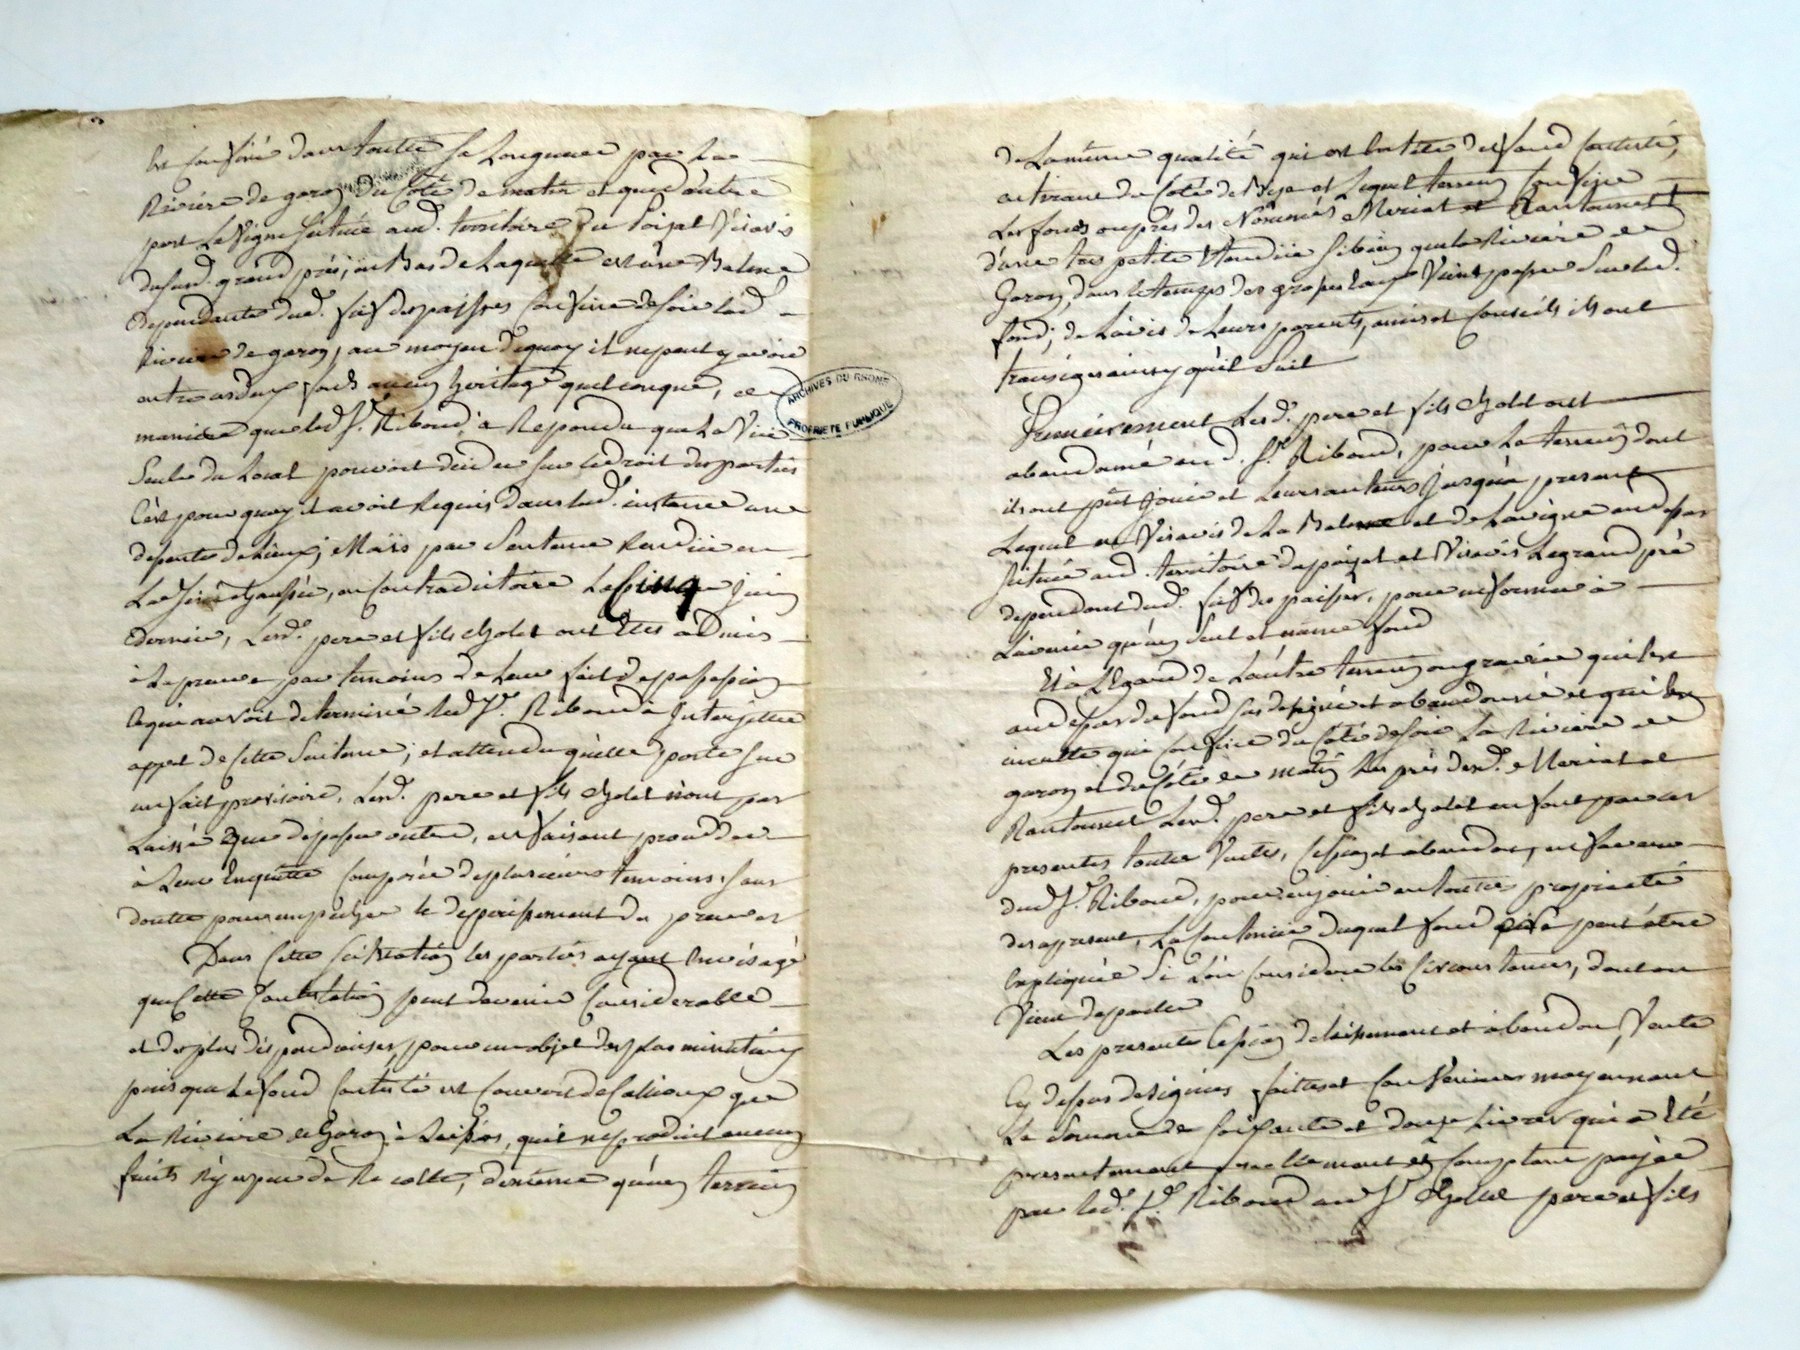 est confiné dans toutte sa longueur par la
Riviere de garon du Coté de matin et que d'autre
part la Vigne scituée aud. territoire du Poijat Visavis
dusud. grand pré, au Bas de laquelle est une Balme
dependante dud. fief des paisses confine de soir lad.
Riviere de garon, au moyen de quoy il ne peut y avoir
entre asdeux fonds aucun heritage quelconque, de
maniere que led. Sr. Riboud, a Repondu que la Vüe
Seule du Local pouvoit decider sur le droit des parties
C'est pour quoy il avoit Requis dans lad. instance une
dessente de Lieux; Mais par Sentence Rendüe en
La Senechaussée, en Contradictoire Le Cinq Juin
dernier, Lesd. pere et fils Cholet ont Etés admis
à la preuve par temoins de leur fait de possession
Ce qui auroit determiné led. Sr. Riboud à Interjetter
appel de Cette Sentence; et attendu quelle porte sur
un fait provisoire, Lesd. pere et fils Cholet n'ont pas
Laissé que de passer outre, en faisant proceder
à Leur Enquette Composée de plusieurs temoins, sans
doutte pour empecher le deperissement des preuves
Dans Cette scituation les parties ayant Envisagé
que Cette Contestation peut devenir Considerable
et des plus dispendieuses, pour un objet des plus minutieux
puisque le fond Contesté est Couvert de Cailloux que
La Riviere de Garon à Laissés, qui ne produit aucun
fruits n'y espece de Recolte, de meme qu'un terrein
ARCHIVES DU RHONE
PROPRIETE PUBLIQUE
de La meme qualité qui est En tete du fond Contesté,
en tirant du Coté de Bise et Lequel terrein Confine
Les fonds ou prés des Nommés Meriat et Rantonnet
d'une tres petite Etendüe si bien que la Riviere de
Garon, dans le temps des grosses Eaux Vient passer Sur led.
fond; de L'avis de Leurs parents, amis et Conseils ils ont
transigé ainsy qu'il Suit
Premierement Lesd. pere et fils Cholet ont
abandonné aud. Sr. Riboud, pour Le terrein dont
ils ont pût Jouir et Leurs auteurs Jusqu'a present
Lequel est Visavis de La Balme et de La vigne au dessus
scituée aud. territoire du poijat et Visavis Le grand pré
dependant dud. fief des paisses, pour ne former à
L'avenir qu'un seul et même fond
Et à L'Egard de L'autre terrein ou gravier qui est
au dessus du fond sus designé et abandonné et qui Est
inculte qui Confine du Coté de soir La Riviere de
garon et du Coté de matin Les prés desd. Meriat et
Rantonnet Lesd. pere et fils Cholet en font par ces
presentes toutte Vente, Cession et abandon, en faveur
dud. Sr. Riboud, pour en jouir en toutte proprieté
des apresent, La Contenüe duquel fond peut être
Expliquée Si L'on Considere les Circonstances, dont on
Vient de parler
Les presente Cession delaissement et abandon, Vente
Cy dessus designées faittes et Convenues moyennant
La Somme de Soixante et douze Livres qui a Eté
presentement reellement et Comptant payée
par led. Sr. Riboud aud. Sr. Cholet pere et fils